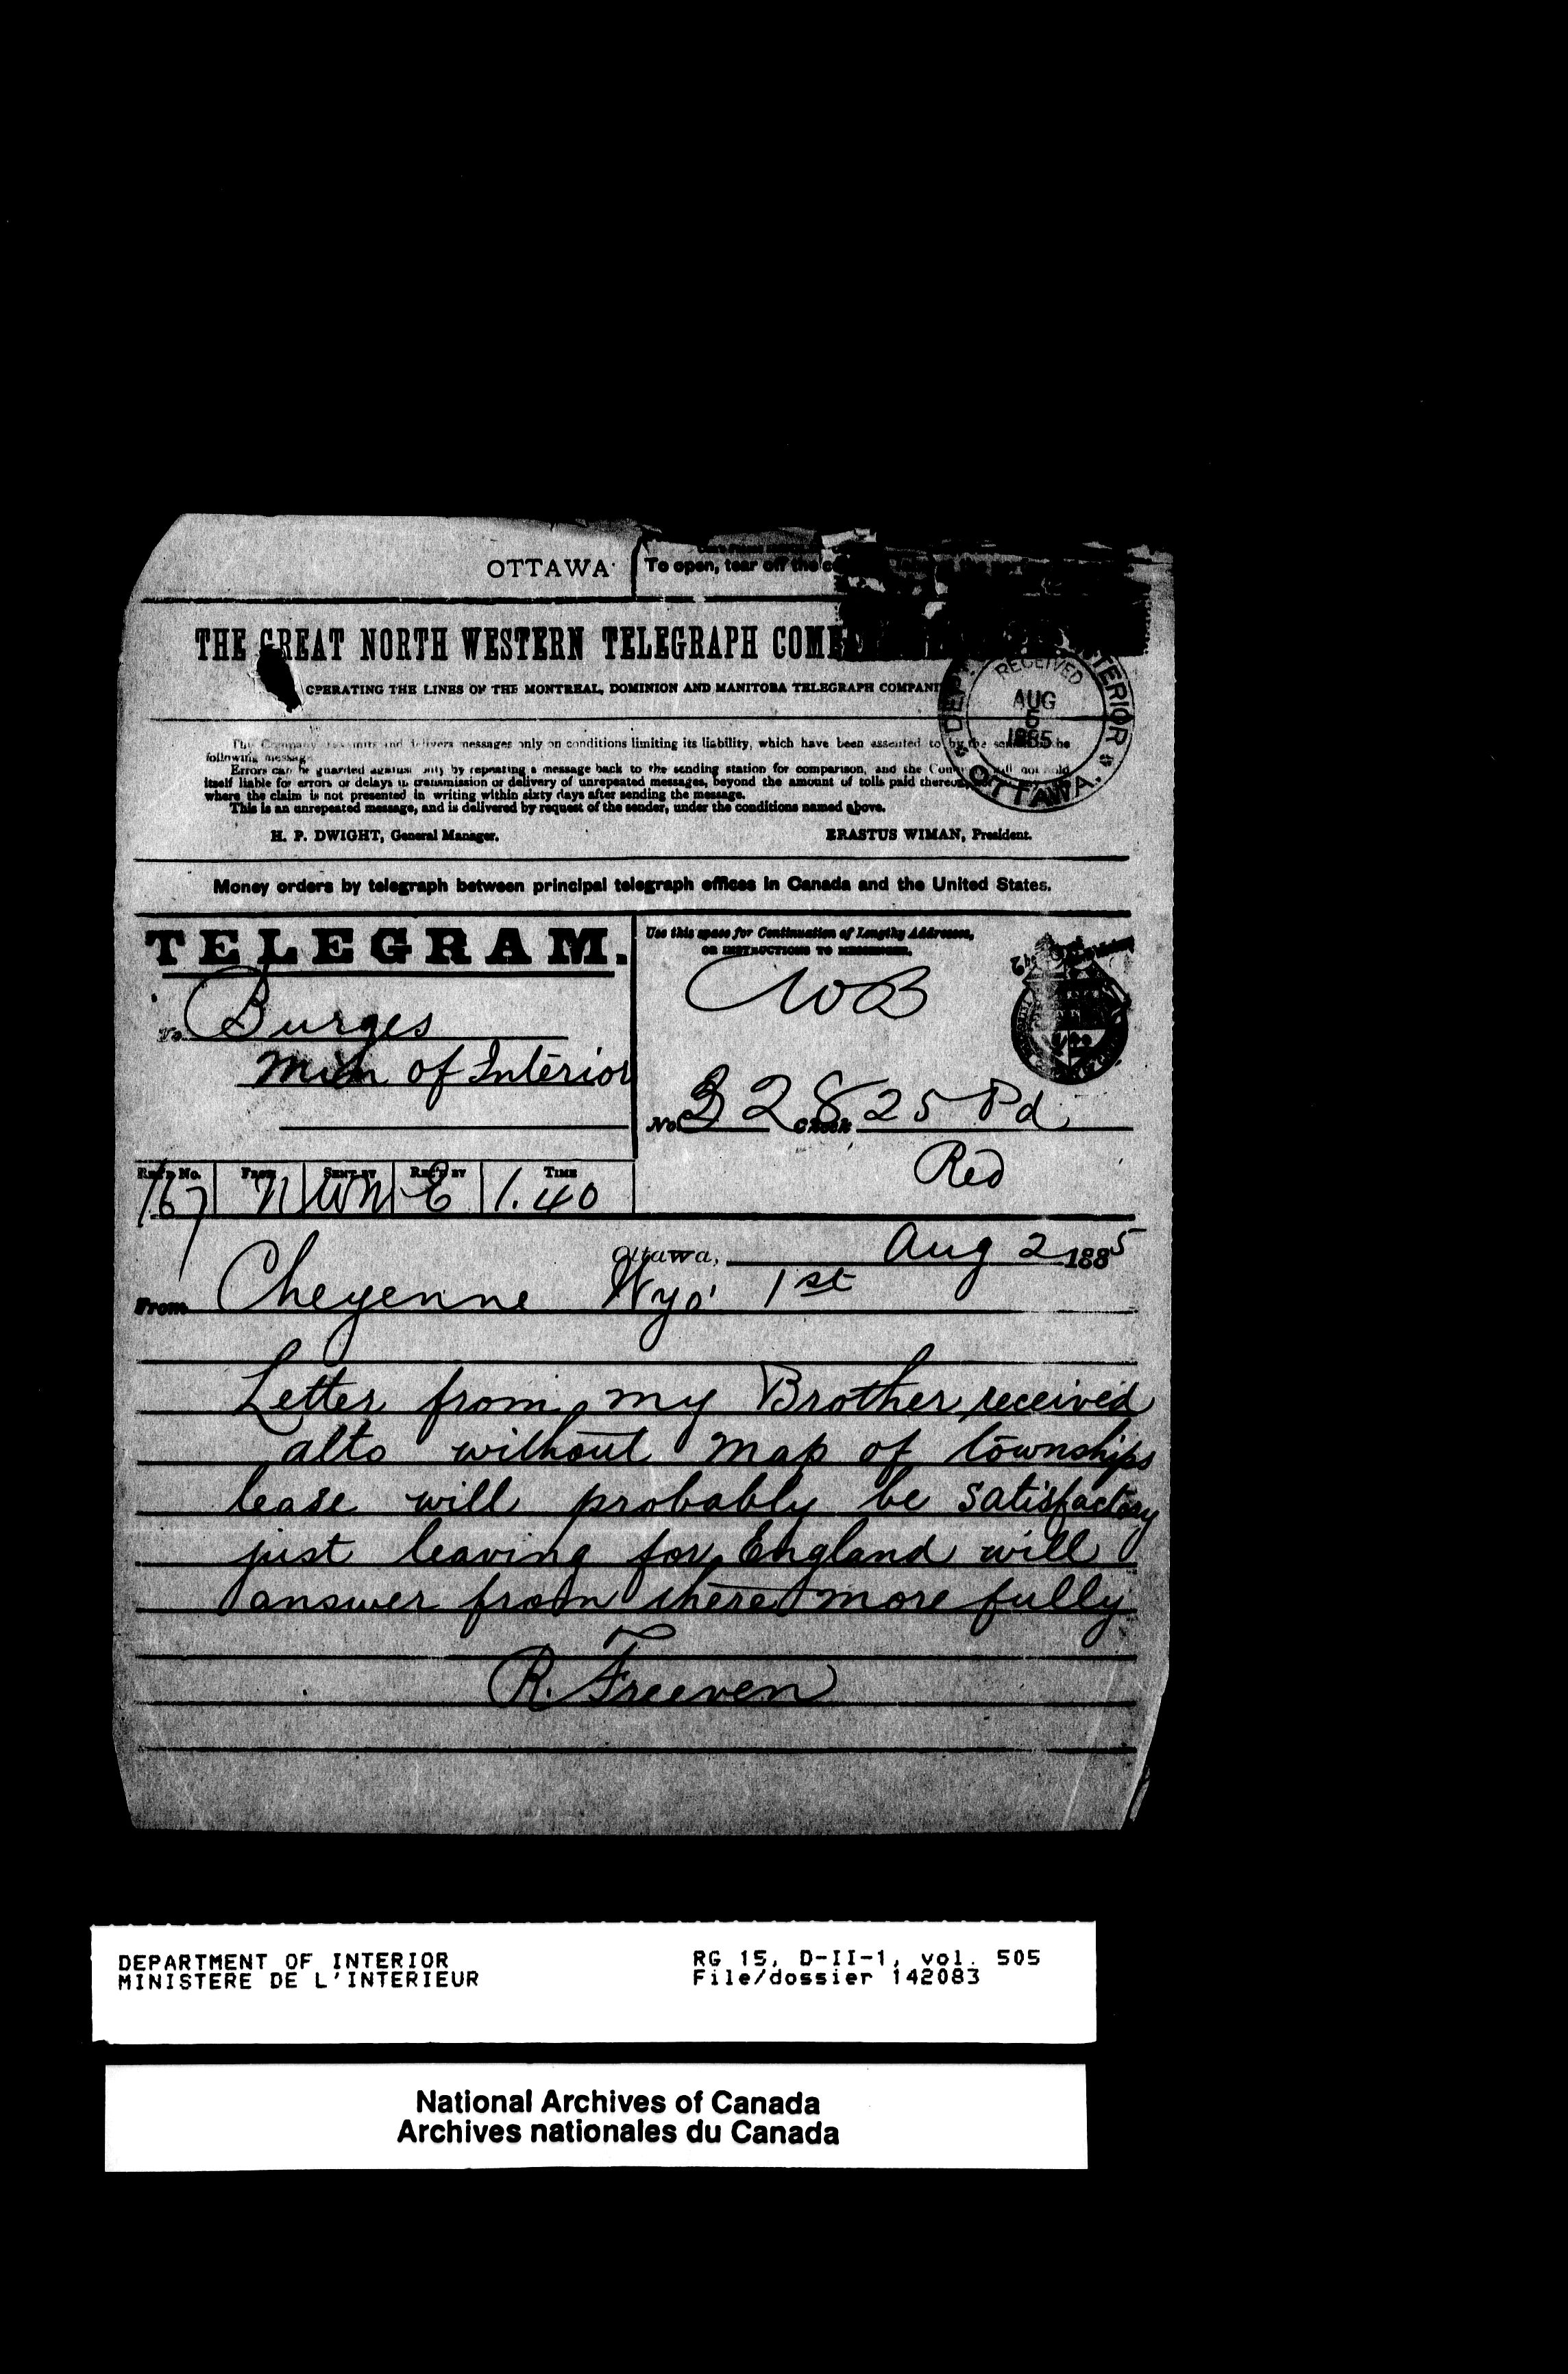 OTTAWA
To open, tear off the
THE GREAT NORTH WESTERN TELEGRAPH
OPERATING THE LINES OF THE MONTREAL, DOMINION AND MANITOBA TELEGRAPH
DEPT. INTERIOR
RECEIVED
AUG
1885
OTTAWA.
The Company transmits and delivers messages only on conditions limiting its liability, which have been assented to by the
following message
Errors can be guarded against only by repeating a message back to the sending station for comparison, and the shall not hold
itself liable for errors or delays in transmission or delivery of unrepeated messages, beyond the amount of tolls paid
where the claim is not presented in writing within sixty days after sending the message.
This is an unrepeated message, and is delivered by request of the sender, under the conditions named above.
H. P. DWIGHT, General Manager. ERASTUS WIMAN, President.
Money orders by telegraph between principal telegraph offices in Canada and the United States.
TELEGRAM.
Use this space for Continuation of Lengthy Addresses,
OR INSTRUCTIONS TO MESSENGER.
To Burges
of Interior
No. Check 25 Pd
Red
Rec'd No. From Sent by Rec'd by Time
167 N WN E 1.40
Ottawa, Aug 2 1885
From Cheyenne Wyo 1st
Letter from my Brother received
alto without map of townships
lease will probably be satisfactory
just leaving for England will
answer from there more fully
R. Freeven
DEPARTMENT OF INTERIOR RG 15, D-II-1, vol. 505
MINISTERE DE L'INTERIEUR File/dossier 142083
National Archives of Canada
Archives nationales du Canada